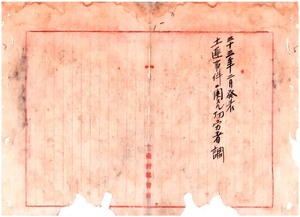 三十三年二月發表
土匪事件ニ関スル功労者調